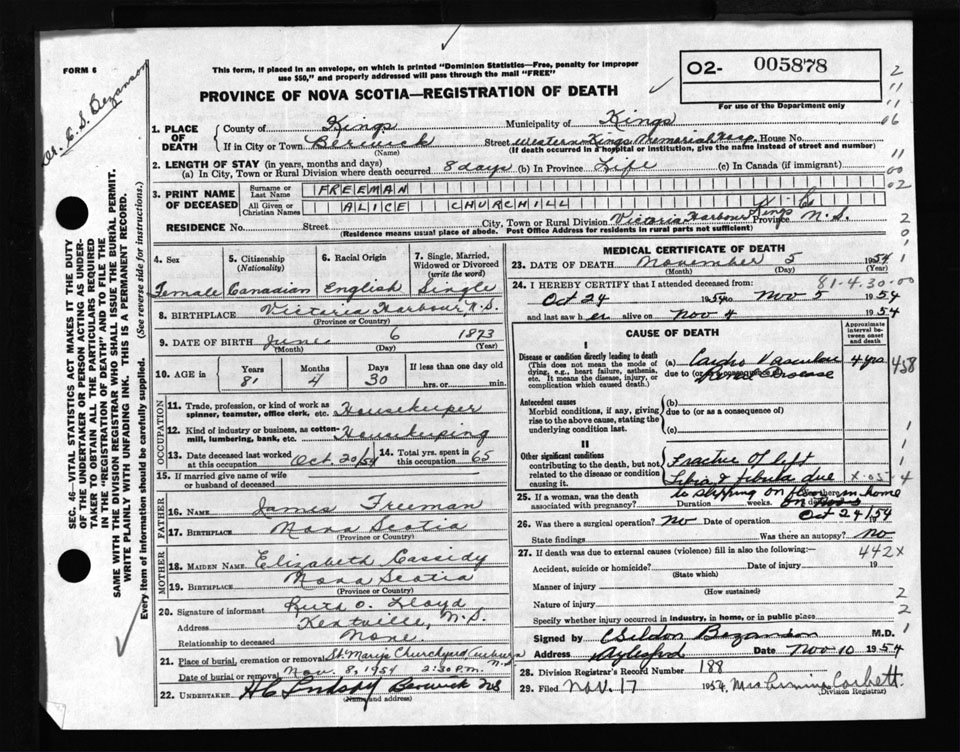 FORM 6
This form, if placed in an envelope, on which is printed "Dominion Statistics—Free, penalty for improper
use $50," and properly addressed will pass through the mail "FREE"
O2- 005878
For use of the Department only
PROVINCE OF NOVA SCOTIA—REGISTRATION OF DEATH
Dr. C. S. Bezanson
SEC. 46—VITAL STATISTICS ACT MAKES IT THE DUTY
OF THE UNDERTAKER OR PERSON ACTING AS UNDER-
TAKER TO OBTAIN ALL THE PARTICULARS REQUIRED
IN THE "REGISTRATION OF DEATH" AND TO FILE THE
SAME WITH THE DIVISION REGISTRAR WHO SHALL ISSUE THE BURIAL PERMIT.
WRITE PLAINLY WITH UNFADING INK. THIS IS A PERMANENT RECORD.
Every item of information should be carefully supplied. (See reverse side for instructions.)
1. PLACE OF DEATH County of Kings Municipality of Kings
If in City or Town Berwick Street Western Kings Memorial Hosp. House No.
(Name) (If death occurred in a hospital or institution, give the name instead of street and number)
2. LENGTH OF STAY (in years, months and days)
(a) In City, Town or Rural Division where death occurred 8 days (b) In Province Life (c) In Canada (if immigrant)
3. PRINT NAME OF DECEASED
Surname or Last Name FREEMAN
All Given or Christian Names ALICE CHURCHILL
RESIDENCE No. Street City, Town or Rural Division Victoria Harbour Kings Co Province N.S.
(Residence means usual place of abode. Post Office Address for residents in rural parts not sufficient)
4. Sex 5. Citizenship (Nationality) 6. Racial Origin 7. Single, Married, Widowed or Divorced (write the word)
Female Canadian English Single
8. BIRTHPLACE Victoria Harbour, N.S.
(Province or Country)
9. DATE OF BIRTH June 6 1873
(Month) (Day) (Year)
10. AGE in Years Months Days If less than one day old
81 4 30 hrs. or min.
OCCUPATION
11. Trade, profession, or kind of work as spinner, teamster, office clerk, etc. Housekeeper
12. Kind of industry or business, as cotton-mill, lumbering, bank, etc. Housekeeping
13. Date deceased last worked at this occupation Oct. 20/54 14. Total yrs. spent in this occupation 65
15. If married give name of wife or husband of deceased
FATHER
16. Name James Freeman
17. Birthplace Nova Scotia
(Province or Country)
MOTHER
18. MAIDEN NAME Elizabeth Cassidy
19. BIRTHPLACE Nova Scotia
(Province or Country)
20. Signature of informant Ruth O. Lloyd
Address Kentville, N.S.
Relationship to deceased None.
21. Place of burial, cremation or removal St. Mary's Churchyard Auburn N.S.
Date of burial or removal Nov. 8, 1954 2:30 P.M.
22. UNDERTAKER Berwick NS
(Name and address)
MEDICAL CERTIFICATE OF DEATH
23. DATE OF DEATH November 5 1954
(Month) (Day) (Year)
81-4.30-00
24. I HEREBY CERTIFY that I attended deceased from:
Oct 24 1954 to Nov 5 1954
and last saw her alive on Nov 4 1954
CAUSE OF DEATH
Approximate interval between onset and death
I
Disease or condition directly leading to death
(This does not mean the mode of dying, e.g., heart failure, asthenia, etc. It means the disease, injury, or complication which caused death.)
(a) Cardio Vascular 4 yrs 458
due to (or as a consequence of) Renal Disease
Antecedent causes
Morbid conditions, if any, giving rise to the above cause, stating the underlying condition last.
(b)
due to (or as a consequence of)
(c)
II
Other significant conditions
contributing to the death, but not related to the disease or condition causing it.
Fracture of left
Tibia & fibula due
to slipping on floor in home
on Oct 24/54
25. If a woman, was the death associated with pregnancy? Duration weeks.
26. Was there a surgical operation? No Date of operation
State findings Was there an autopsy? No
27. If death was due to external causes (violence) fill in also the following:— 442X
Accident, suicide or homicide? Date of injury 19
(State which)
Manner of injury
(How sustained)
Nature of injury
Specify whether injury occurred in industry, in home, or in public place
Signed by C Seldon Bezanson M.D.
Address Aylesford Date Nov 10 1954
28. Division Registrar's Record Number 188
29. Filed Nov. 17 1954 Mrs Corbett
(Division Registrar)